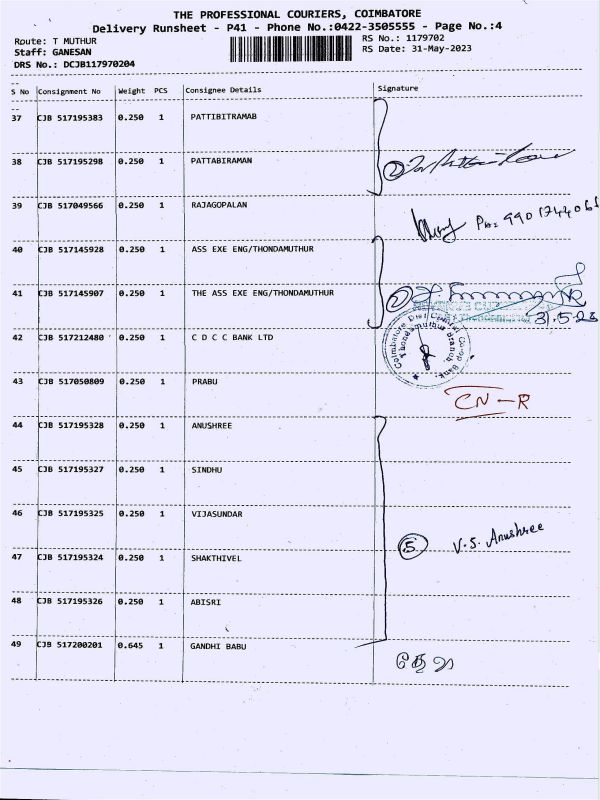 THE PROFESSIONAL COURIERS, COIMBATORE
Delivery Runsheet - P41 - Phone No.:0422-3505555 - Page No.:4
Route: T MUTHUR
Staff: GANESAN
DRS No.: DCJB117970204
RS No.: 1179702
RS Date: 31-May-2023
S No Consignment No Weight PCS Consignee Details Signature
37 CJB 517195383 0.250 1 PATTIBITRAMAB
38 CJB 517195298 0.250 1 PATTABIRAMAN 2
39 CJB 517049566 0.250 1 RAJAGOPALAN
40 CJB 517145928 0.250 1 ASS EXE ENG/THONDAMUTHUR
41 CJB 517145907 0.250 1 THE ASS EXE ENG/THONDAMUTHUR 2
31.5.23
42 CJB 517212480 0.250 1 C D C C BANK LTD
Coimbatore Dist Central Co-op Bank.
Thondamuthur Branch.
43 CJB 517050809 0.250 1 PRABU
CN - R
44 CJB 517195328 0.250 1 ANUSHREE
45 CJB 517195327 0.250 1 SINDHU
46 CJB 517195325 0.250 1 VIJASUNDAR
5. V.S. Anushree
47 CJB 517195324 0.250 1 SHAKTHIVEL
48 CJB 517195326 0.250 1 ABISRI
49 CJB 517200201 0.645 1 GANDHI BABU